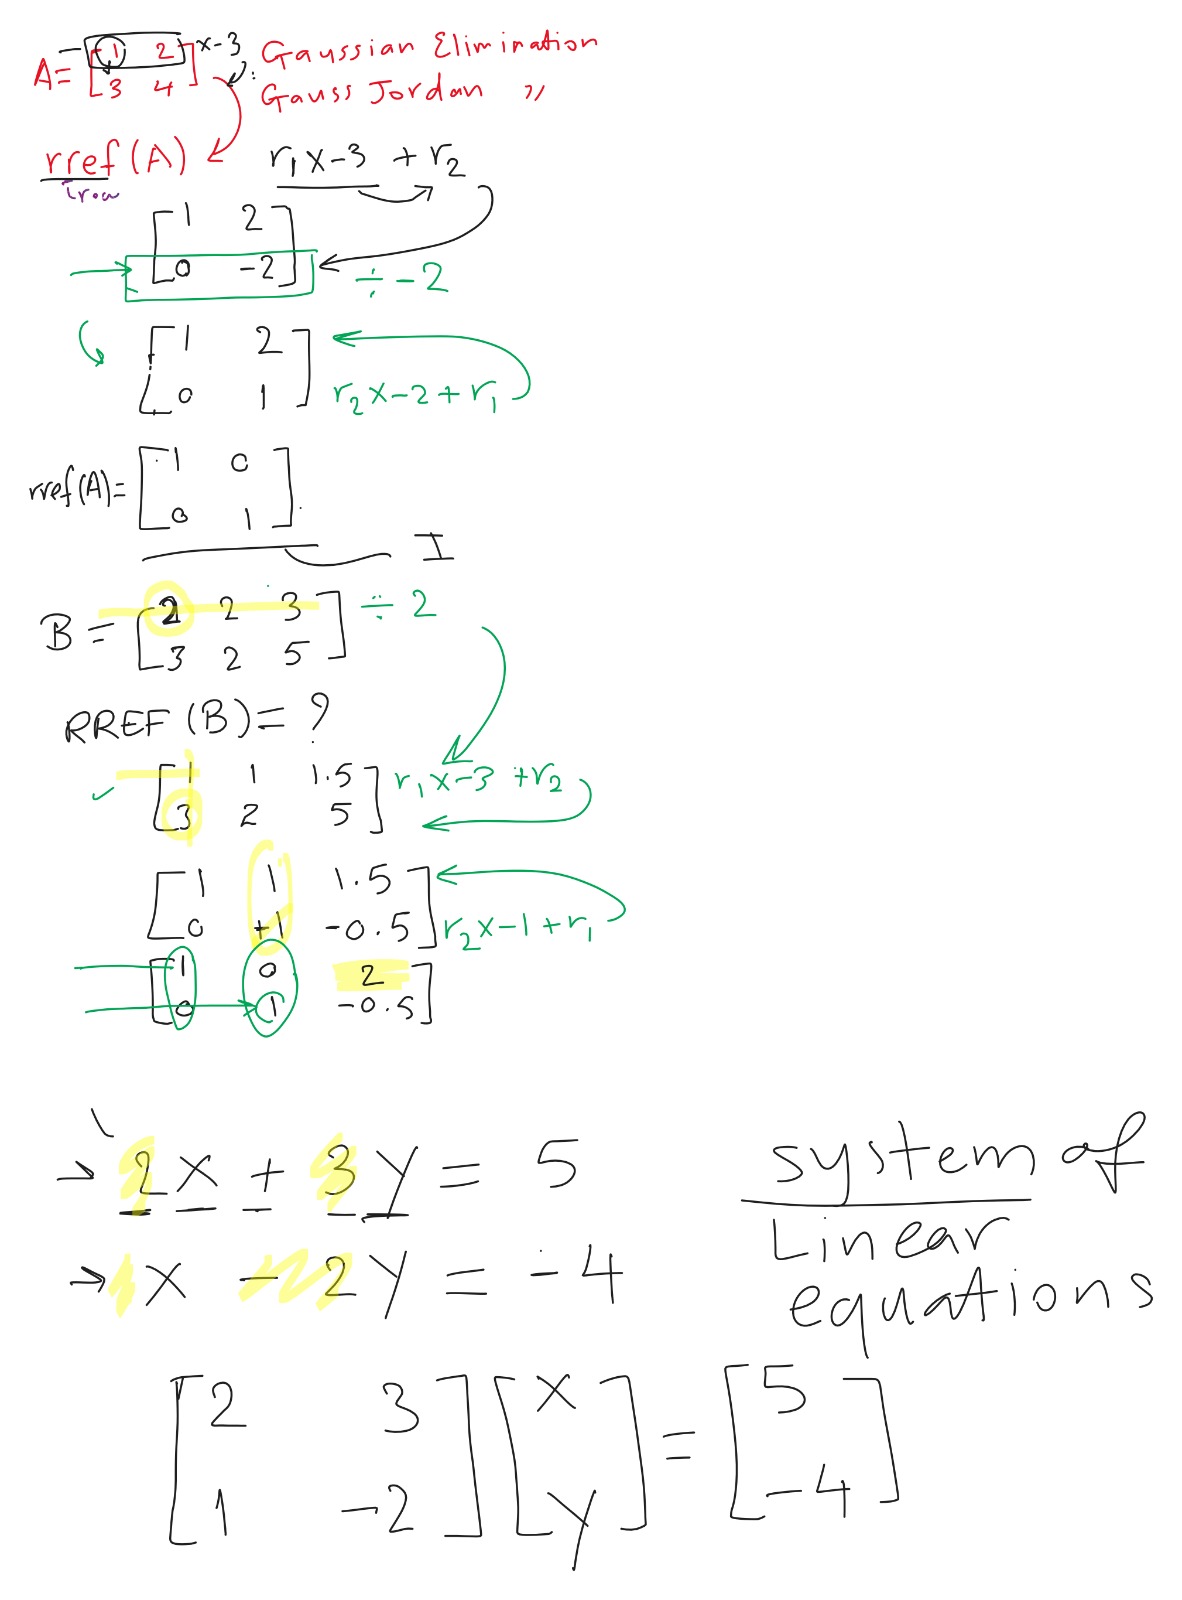 A = [1 2 x-3 : Gaussian Elimination
3 4] Gauss Jordan "
rref(A) r₁x-3 + r₂
row
[1 2
0 -2] ÷ -2
[1 2
0 1] r₂x-2 + r₁
rref(A) = [1 0
0 1]
I
B = [2 2 3 ÷ 2
3 2 5]
RREF(B) = ?
[1 1 1.5 r₁x-3 + r₂
3 2 5]
[1 1 1.5
0 +1 -0.5] r₂x-1 + r₁
[1 0 2
0 1 -0.5]
→ 2x + 3y = 5
→ x - 2y = -4
system of
Linear
equations
[2 3 [x = [5
1 -2] y] -4]